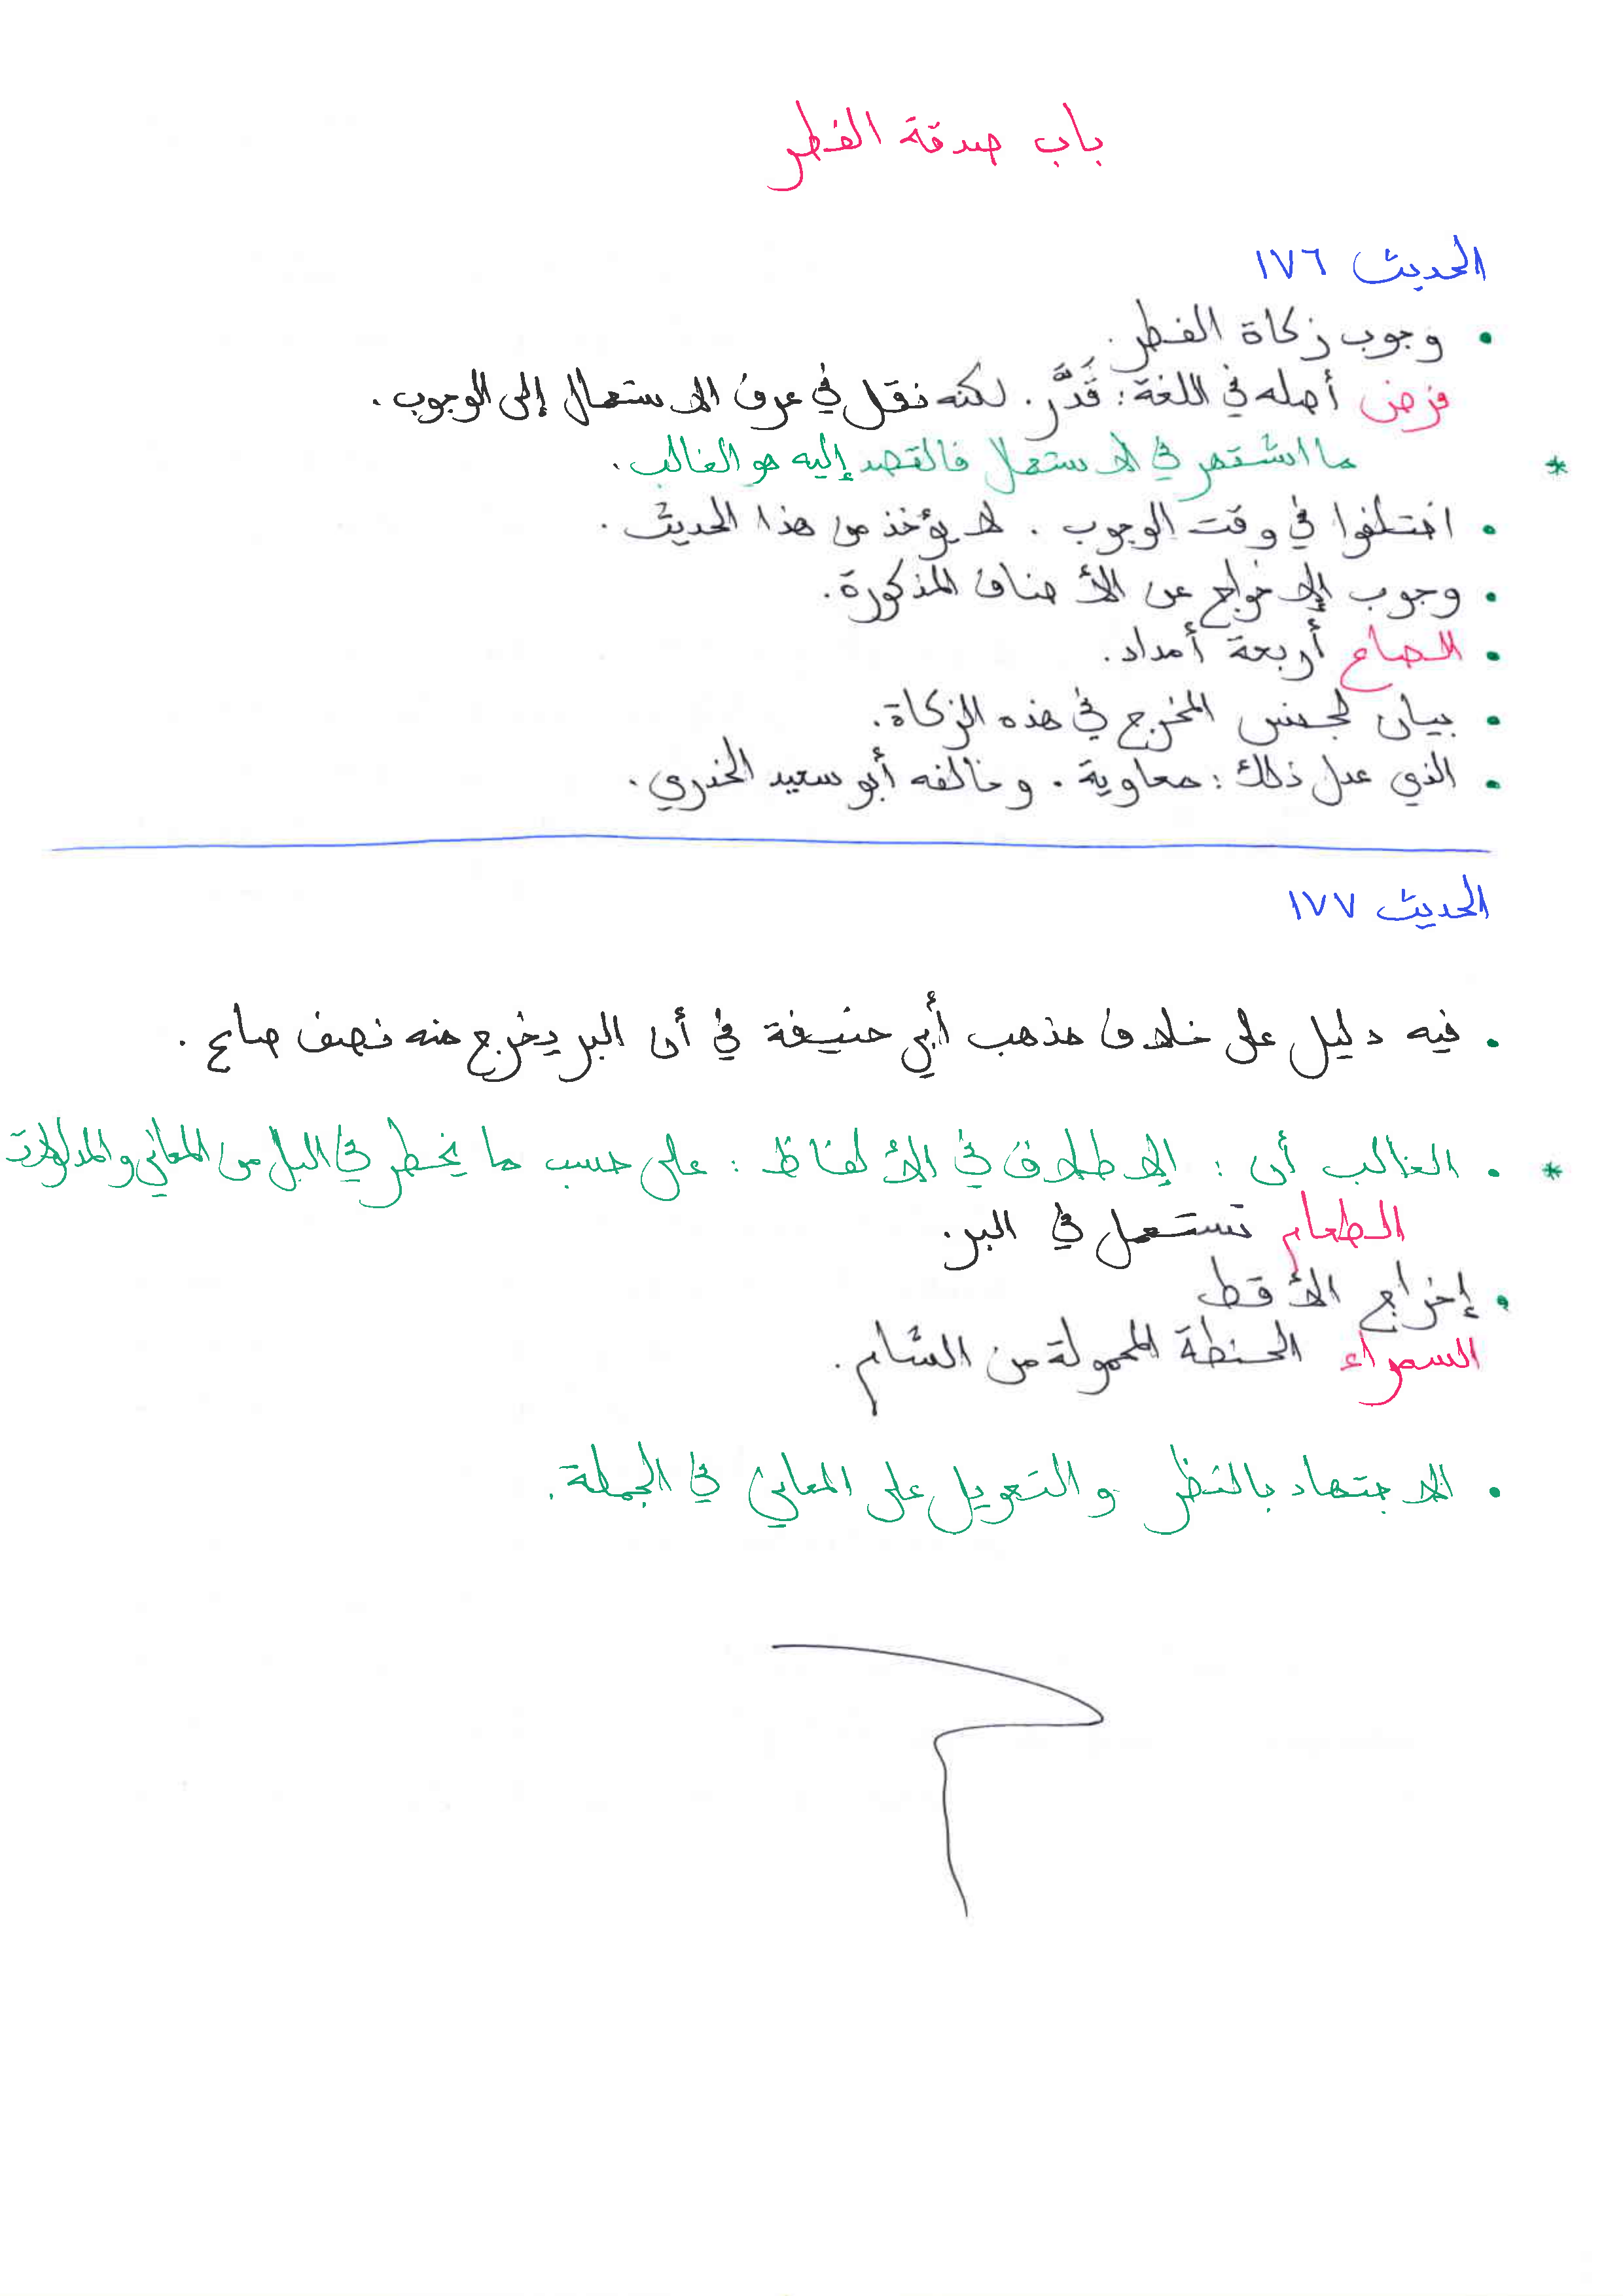 باب صدقة الفطر
الحديث ١٧٦
• وجوب زكاة الفطر.
فرض أصله في اللغة: قَدَّر. لكنه نقل في عرف الاستعمال إلى الوجوب.
* ما اشتهر في الاستعمال فالقصد إليه هو الغالب.
• اختلفوا في وقت الوجوب. لا يؤخذ من هذا الحديث.
• وجوب الإخراج عن الأصناف المذكورة.
• الصاع أربعة أمداد.
• بيان لجنس المخرج في هذه الزكاة.
• الذي عدل ذلك: معاوية. وخالفه أبو سعيد الخدري.
الحديث ١٧٧
• فيه دليل على خلاف مذهب أبي حنيفة في أن البر يخرج منه نصف صاع.
* • الغالب أن: الإطلاق في الألفاظ: على حسب ما يخطر في البال من المعاني والمدلولات
الطعام تستعمل في البر.
• إخراج الأقط
السمراء الحنطة المحمولة من الشام.
• الاجتهاد بالنظر والتعويل على المعاني في الجملة.